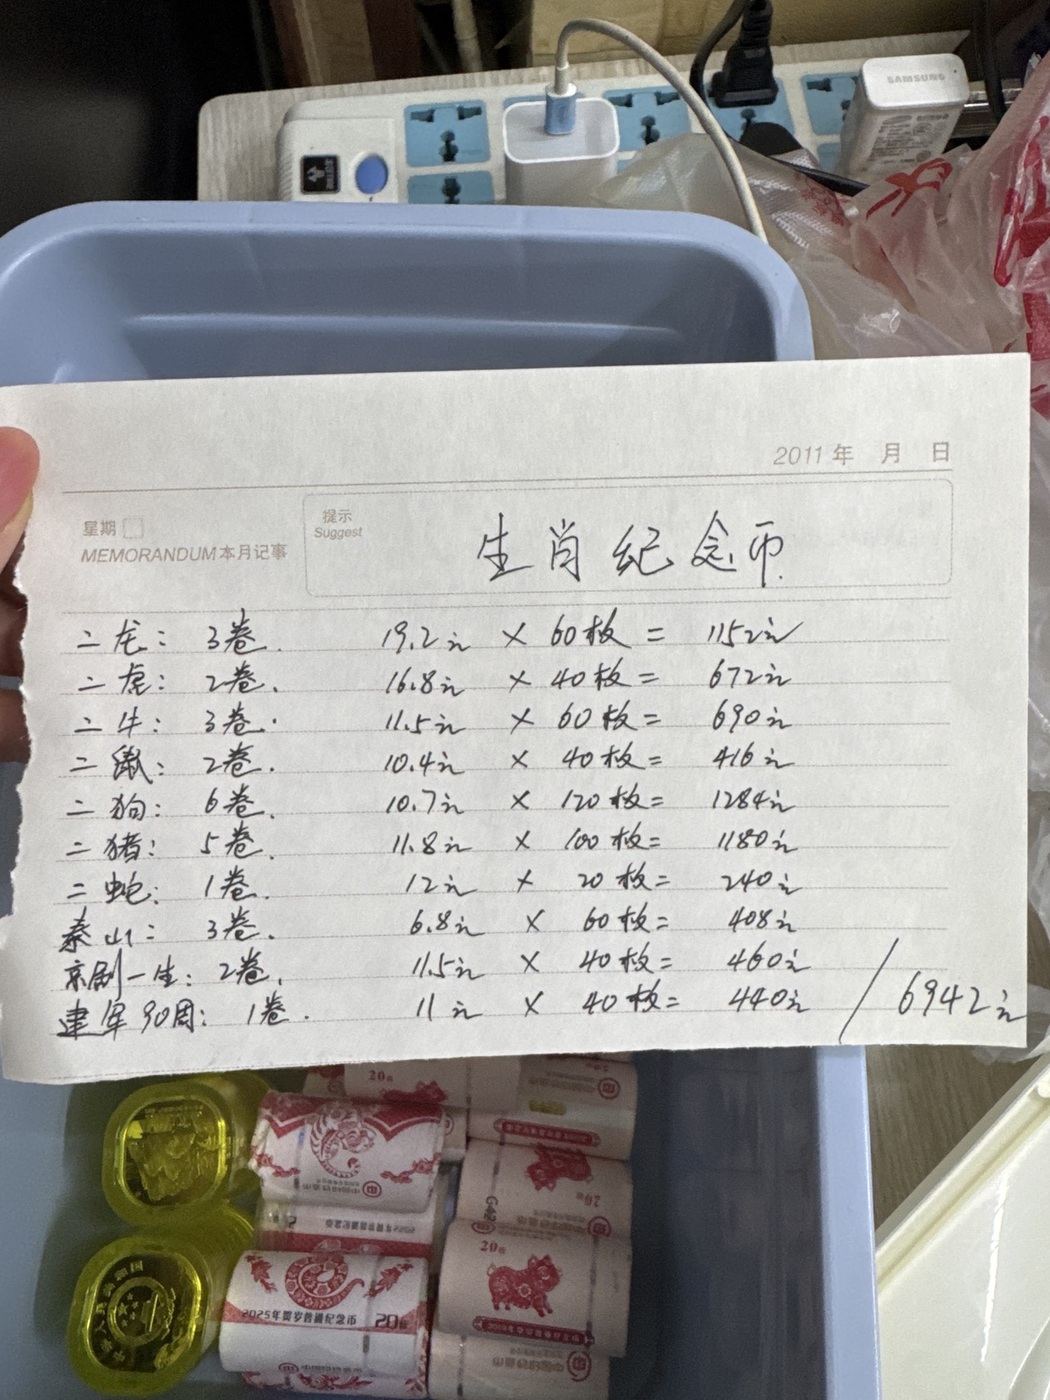 SAMSUNG
2011年 月 日
星期
提示
Suggest
MEMORANDUM本月记事
生肖纪念币
二龙: 3卷. 19.2元 × 60枚 = 1152元
二虎: 2卷. 16.8元 × 40枚 = 672元
二牛: 3卷. 11.5元 × 60枚 = 690元
二鼠: 2卷. 10.4元 × 40枚 = 416元
二狗: 6卷. 10.7元 × 120枚 = 1284元
二猪: 5卷. 11.8元 × 100枚 = 1180元
二蛇: 1卷. 12元 × 20枚 = 240元
泰山: 3卷. 6.8元 × 60枚 = 408元
京剧一生: 2卷. 11.5元 × 40枚 = 460元
建军90周: 1卷. 11元 × 40枚 = 440元 / 6942元
20枚
20枚
20枚
2025年贺岁普通纪念币 20枚